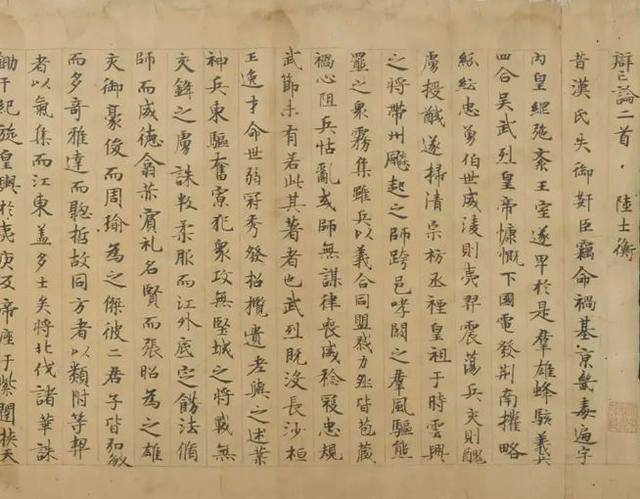 辯亡論二首 陸士衡
昔漢氏失御奸臣竊命禍基京畿毒遍宇
內皇綱弛紊王室遂卑於是羣雄蜂駭義兵
四合吳武烈皇帝慷慨下國電發荊南權略
紛紜忠勇伯世威凌則夷羿震蕩兵交則醜
虜授馘遂掃清宗祊丞禋皇祖于時雲興
之將帶州飇起之師跨邑哮闞之羣風驅熊
羆之衆霧集雖兵以義合同盟戮力然皆苞藏
禍心阻兵怙亂或師無謀律喪威稔寇忠規
武節未有若此其著者也武烈既沒長沙桓
王逸才命世弱冠秀發招攬遺老與之述業
神兵東驅奮寡犯衆攻無堅城之將戰無
交鋒之虜誅叛柔服而江外底定飭法脩
師而威德翕赫賓礼名賢而張昭為之雄
交御豪俊而周瑜為之傑彼二君子皆弘敏
而多奇雅達而聰哲故同方者以類附等契
者以氣集而江東蓋多士矣將北伐諸華誅
鋤干紀旋皇輿於夷庚反帝座于紫闥挾天